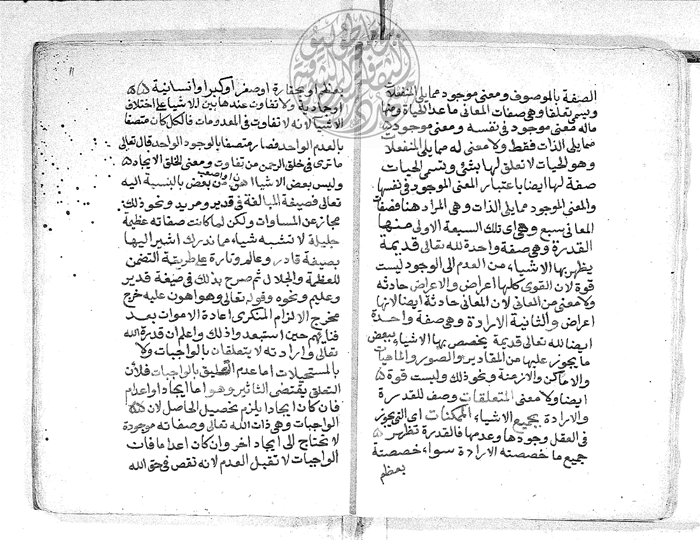 الصفة بالموصوف ومعنى موجود مما يلى المنفعلات
ويسمى تعلقا وهى صفات المعانى ما عدا الحياة ومنها
ماله معنى موجود فى نفسه ومعنى موجود
مما يلى الذات فقط ولا معنى له مما يلى المنفعلات
وهو الحيات لا تعلق لها بشئ وتسمى الحيات
صفة لها ايضا باعتبار المعنى الموجود فى نفسها
والمعنى الموجود مما يلى الذات وهى المراد هنا فصفات
المعانى سبع وهى اى تلك السبعة الاولى منها
القدرة وهى صفة واحدة لله تعالى قديمة
يظهر بها الاشياء من العدم الى الوجود ليست
قوة لان القوى كلها اعراض والاعراض حادثة
ولا معنى من المعانى لان المعانى حادثة ايضا لانها
اعراض والثانية الارادة وهى صفة واحدة
ايضا لله تعالى قديمة يخصص بها الاشياء ببعض
ما يجوز عليها من المقادير والصور والماهيات
والاماكن والازمنة ونحو ذلك وليست قوة
ايضا ولا معنى المتعلقات وصف للقدرة
والارادة بجميع الاشياء الممكنات اى التى يجوز
فى العقل وجودها وعدمها فالقدرة تظهر
جميع ما خصصته الارادة سواء خصصته
بعظم
بعظم او بحقارة او صغر او كبر او انسانية
او جمادية ولا تفاوت عندها بين الاشياء على اختلاف
الاشيا لانه لا تفاوت فى المعدومات فالكل كان متصفا
بالعدم الواحد فصار متصفا بالوجود الواحد قال تعالى
ما ترى فى خلق الرحمن من تفاوت ومعنى الخلق الايجاد
وليس بعض الاشيا اهون من بعض بالنسبة اليه
تعالى فصيغة المبالغة فى قدير ومريد ونحو ذلك
مجاز عن المساوات ولكن لما كانت صفاته عظيمة
جليلة لا تشبه شياء مما ندرك اشير اليها
بصيغة قادر وعالم وتارة على طريقة التضمن
للعظمة والجلال ثم صرح بذلك فى صيغة قدير
وعليم ونحوه وقوله تعالى وهو اهون عليه خرج
مخرج الالزام لمنكرى اعادة الاموات بعد
فنائهم حين استبعدوا ذلك واعلم ان قدرة الله
تعالى وارادته لا يتعلقان بالواجبات ولا
بالمستحيلات اما عدم التعليق بالواجبات فلأن
التعلق يقتضى التاثير وهو اما ايجاد او اعدام
فان كان ايجادا يلزم تحصيل الحاصل لان
الواجبات وهى ذات الله تعالى وصفاته موجودة
لا تحتاج الى ايجاد اخر وان كان اعداما فان
الواجبات لا تقبل العدم لانه نقص فى حق الله